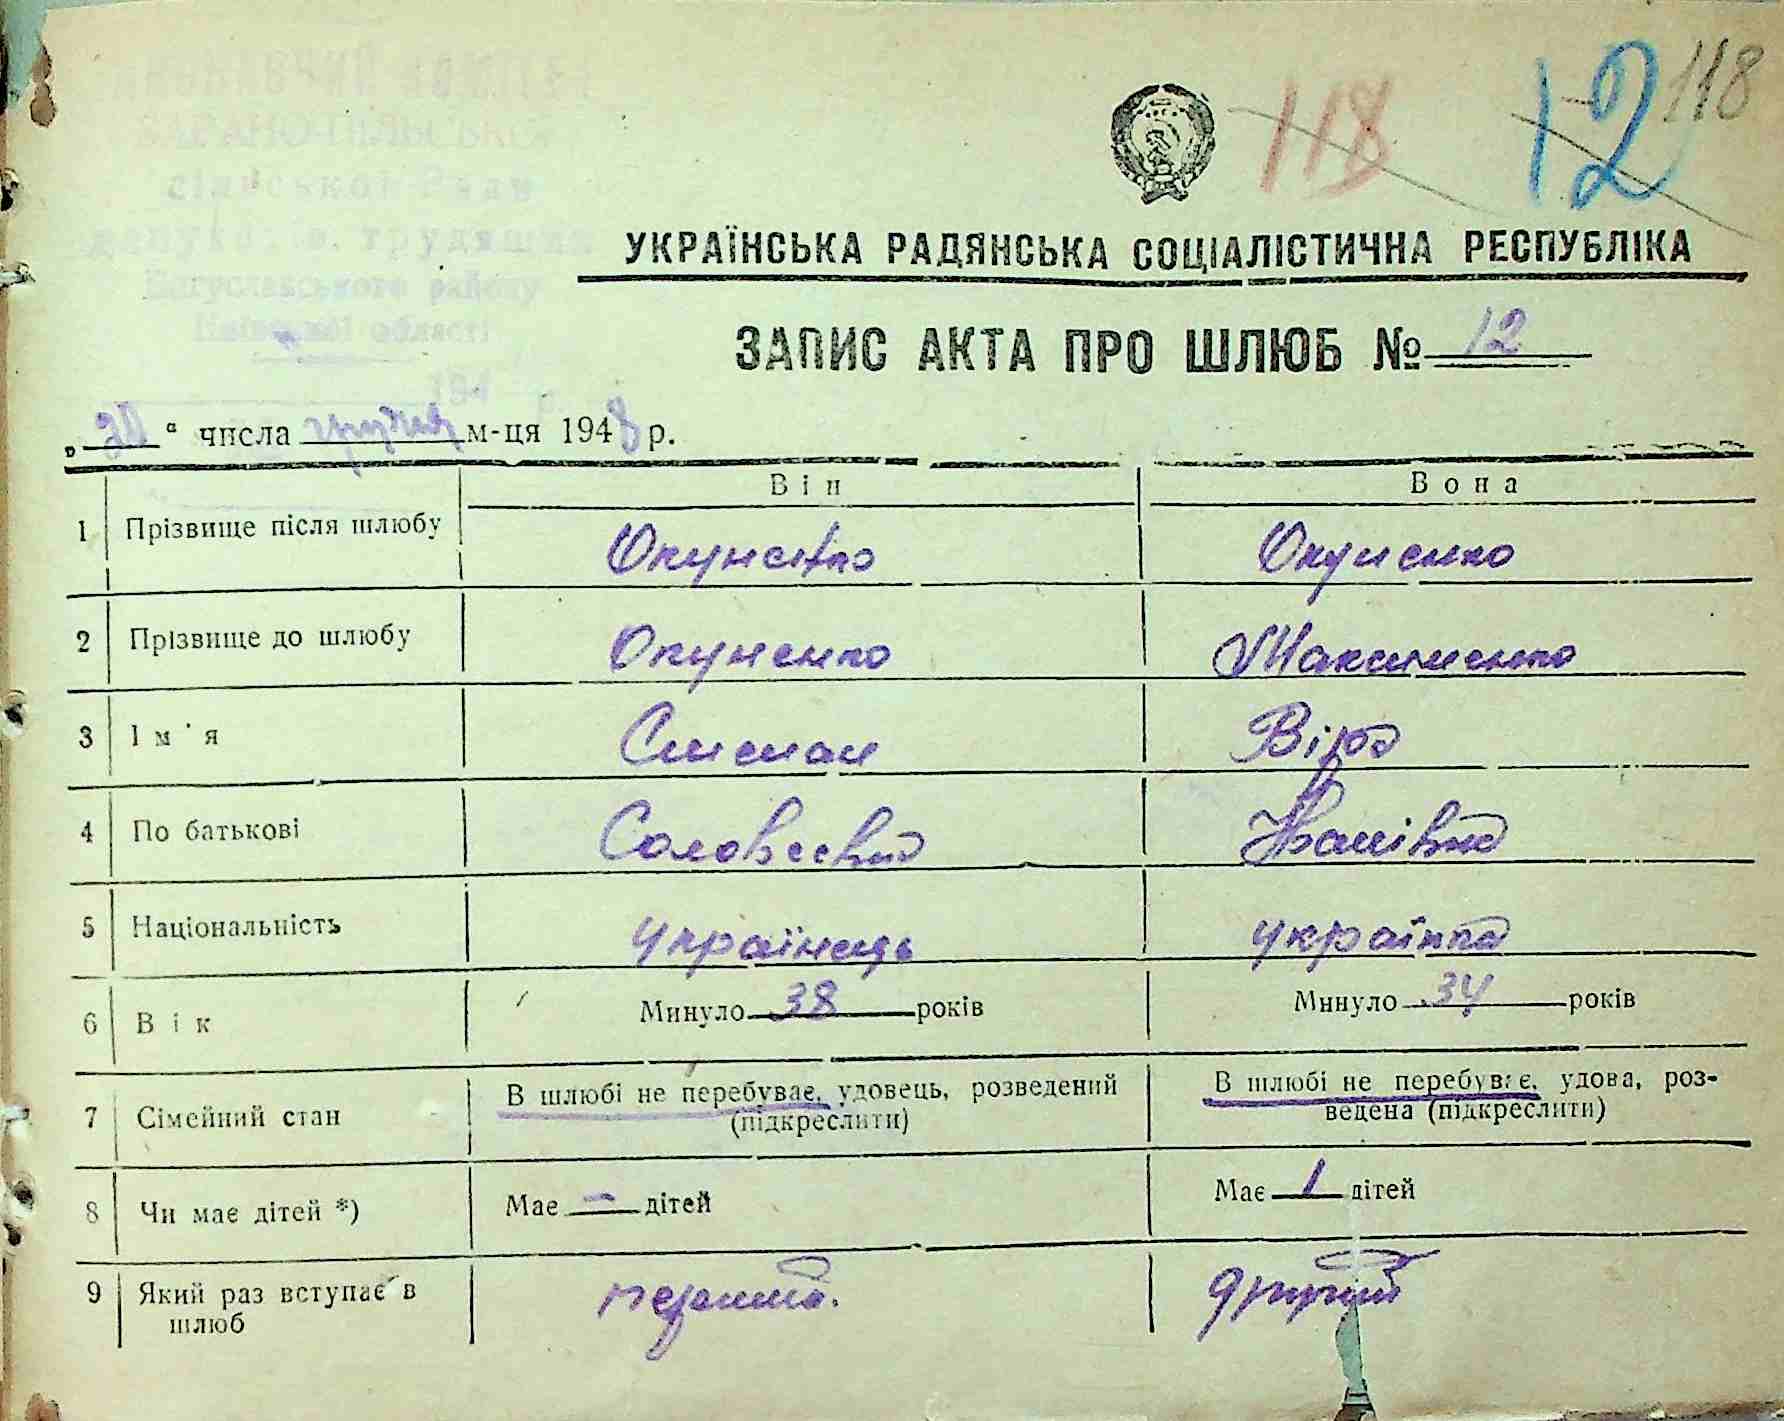 118 12 118
УКРАЇНСЬКА РАДЯНСЬКА СОЦІАЛІСТИЧНА РЕСПУБЛІКА
ЗАПИС АКТА ПРО ШЛЮБ № 12
„ 20 “ числа грудня м-ця 1948 р.
Він Вона
1 Прізвище після шлюбу Окуненко Окуненко
2 Прізвище до шлюбу Окуненко Максименко
3 Ім'я Степан Віра
4 По батькові Соловеєвич Іванівна
5 Національність українець українка
6 Вік Минуло 38 років Минуло 34 років
7 Сімейний стан В шлюбі не перебуває, удовець, розведений (підкреслити) В шлюбі не перебуває, удова, роз-
ведена (підкреслити)
8 Чи має дітей *) Має — дітей Має 1 дітей
9 Який раз вступає в перший. другий
шлюб
сільської Ради
депутатів трудящих
Богуславського району
Київської області
194 р.